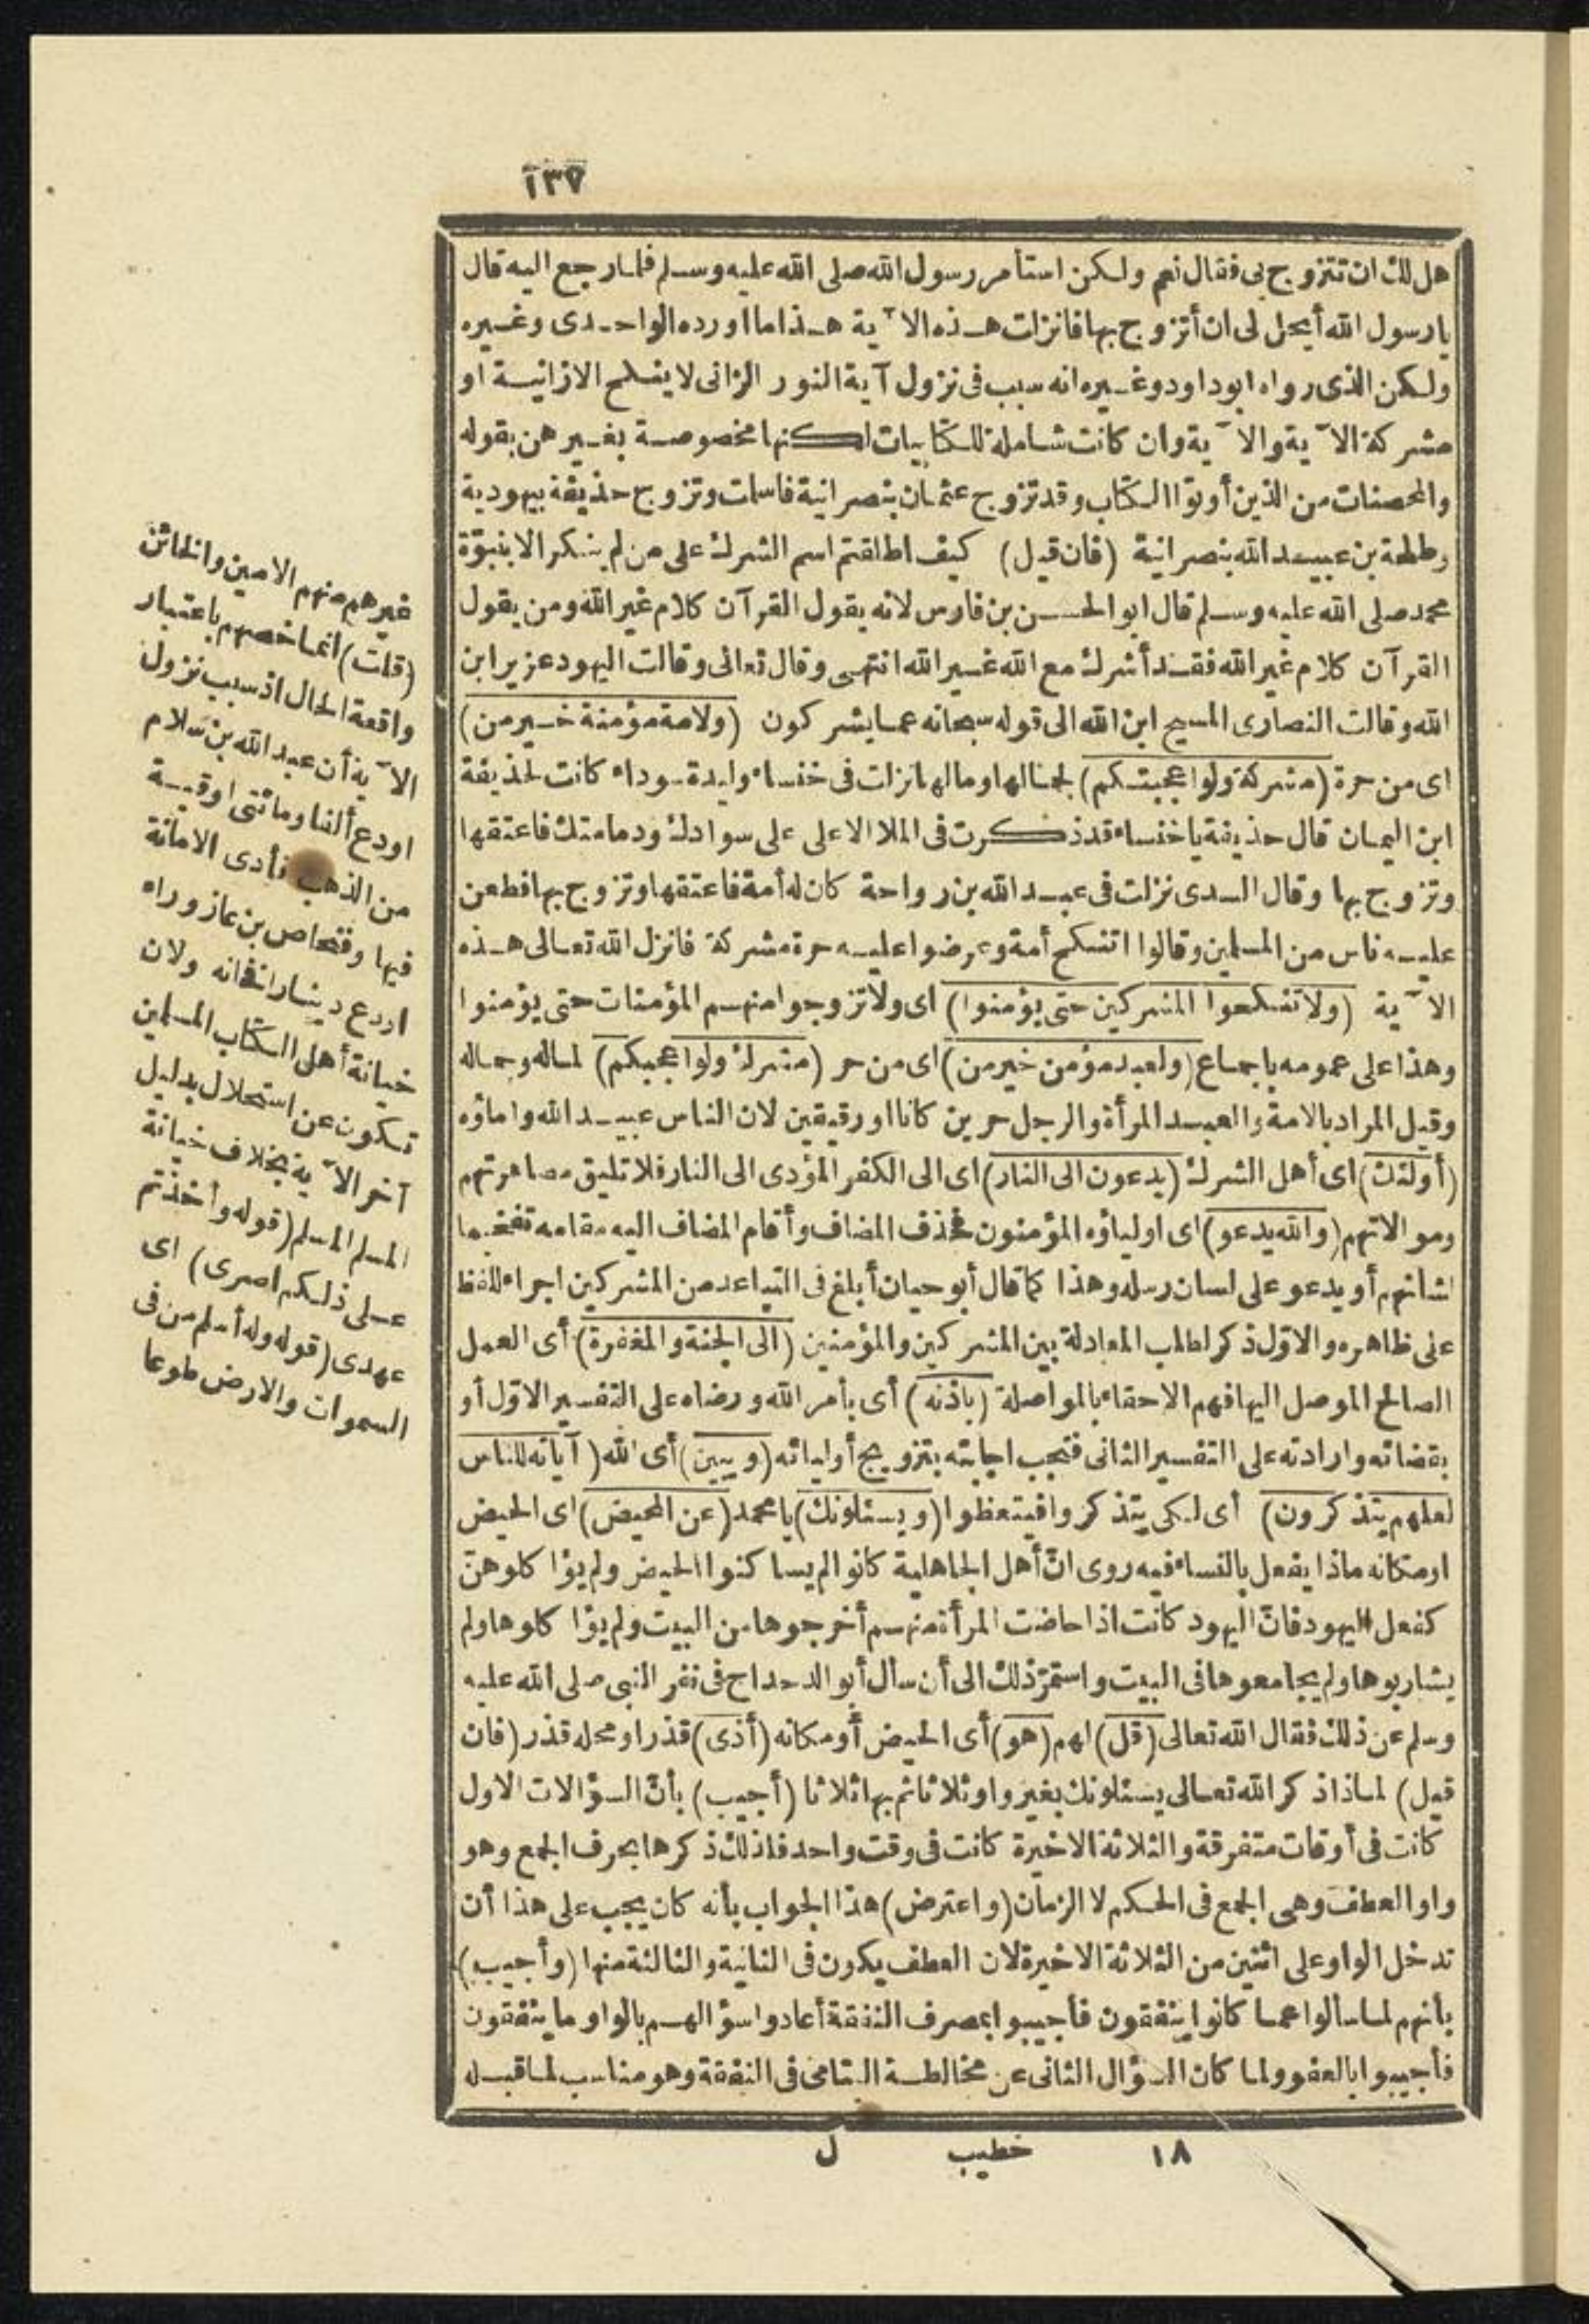 ١٣٧
هل لك ان تتزوج بى فقال نعم ولكن استأمر رسول الله صلى الله عليه وسلم فلما رجع اليه قال
يا رسول الله أيحل لى ان أتزوج بها فانزلت هذه الآية هذا ما اورده الواحدى وغيره
ولكن الذى رواه ابو داود وغيره انه سبب فى نزول آية النور الزانى لا ينكح الا زانية او
مشركة الآية والآية وان كانت شاملة للكتابيات لكنها مخصوصة بغيرهن بقوله
والمحصنات من الذين أوتوا الكتاب وقد تزوج عثمان بنصرانية فاسلمت وتزوج حذيفة بيهودية
وطلحة بن عبيد الله بنصرانية (فان قيل) كيف اطلقتم اسم الشرك على من لم ينكر الا بنبوّة
محمد صلى الله عليه وسلم قال ابو الحسن بن فارس لانه يقول القرآن كلام غير الله ومن يقول
القرآن كلام غير الله فقد أشرك مع الله غير الله انتهى وقال تعالى وقالت اليهود عزير ابن
الله وقالت النصارى المسيح ابن الله الى قوله سبحانه عما يشركون (ولامة مؤمنة خير من)
اى من حرة (مشركة ولو اعجبتكم) لجمالها ومالها نزلت فى خنساء وليدة سوداء كانت لحذيفة
ابن اليمان قال حذيفة يا خنساء قد ذكرت فى الملا الاعلى على سوادك ودمامتك فاعتقها
وتزوج بها وقال السدى نزلت فى عبد الله بن رواحة كان له أمة فاعتقها وتزوج بها فطعن
عليه ناس من المسلمين وقالوا اتنكح أمة وعرضوا عليه حرة مشركة فانزل الله تعالى هذه
الآية (ولا تنكحوا المشركين حتى يؤمنوا) اى ولا تزوجوا منهم المؤمنات حتى يؤمنوا
وهذا على عمومه باجماع (ولعبد مؤمن خير من) اى من حر (مشرك ولو اعجبكم) لماله وجماله
وقيل المراد بالامة والعبد المرأة والرجل حرين كانا او رقيقين لان الناس عبيد الله واماؤه
(أولئك) اى أهل الشرك (يدعون الى النار) اى الى الكفر المؤدى الى النار فلا تليق مصاهرتهم
وموالاتهم (والله يدعو) اى اولياؤه المؤمنون فحذف المضاف وأقام المضاف اليه مقامه تفخيما
لشانهم أو يدعو على لسان رسله وهذا كما قال أبو حيان أبلغ فى التباعد من المشركين اجراء للفظ
على ظاهره والاوّل ذكر لطلب المعادلة بين المشركين والمؤمنين (الى الجنة والمغفرة) أى العمل
الصالح الموصل اليها فهم الاحقاء بالمواصلة (باذنه) أى بأمر الله ورضاه على التفسير الاوّل أو
بقضائه وارادته على التفسير الثانى فتجب اجابته بتزويج أوليائه (ويبين) أى الله (آياته للناس
لعلهم يتذكرون) أى لكى يتذكروا فيتعظوا (ويسئلونك) يا محمد (عن المحيض) اى الحيض
او مكانه ماذا يفعل بالنساء فيه روى انّ أهل الجاهلية كانوا لم يساكنوا الحيض ولم يؤاكلوهنّ
كفعل اليهود فانّ اليهود كانت اذا حاضت المرأة منهم أخرجوها من البيت ولم يؤاكلوها ولم
يشاربوها ولم يجامعوها فى البيت واستمرّ ذلك الى أن سأل أبو الدحداح فى نفر النبى صلى الله عليه
وسلم عن ذلك فقال الله تعالى (قل) لهم (هو) أى الحيض أو مكانه (أذى) قذر او محله قذر (فان
قيل) لماذا ذكر الله تعالى يسئلونك بغير واو ثلاثا ثم بها ثلاثا (أجيب) بأنّ السؤالات الاول
كانت فى أوقات متفرقة والثلاثة الاخيرة كانت فى وقت واحد فلذلك ذكرها بحرف الجمع وهو
واو العطف وهى الجمع فى الحكم لا الزمان (واعترض) هذا الجواب بأنه كان يجب على هذا أن
تدخل الواو على اثنين من الثلاثة الاخيرة لان العطف يكون فى الثانية والثالثة منها (وأجيب)
بأنهم لما سألوا عما كانوا ينفقون فأجيبوا بمصرف النفقة أعادوا سؤالهم بالواو ما ينفقون
فأجيبوا بالعفو ولما كان السؤال الثانى عن مخالطة اليتامى فى النفقة وهو مناسب لما قبله
١٨ خطيب ل
غيرهم منهم الامين والخائن
(قلت) انما خصهم باعتبار
واقعة الحال اذ سبب نزول
الآية أن عبد الله بن سلام
اودع ألفا ومائتى اوقية
من الذهب فأدى الامانة
فيها وفنحاص بن عازوراء
اودع دينارا فخانه ولان
خيانة أهل الكتاب المسلمين
تكون عن استحلال بدليل
آخر الآية بخلاف خيانة
المسلم المسلم (قوله وأخذتم
على ذلكم اصرى) اى
عهدى (قوله وله أسلم من فى
السموات والارض طوعا